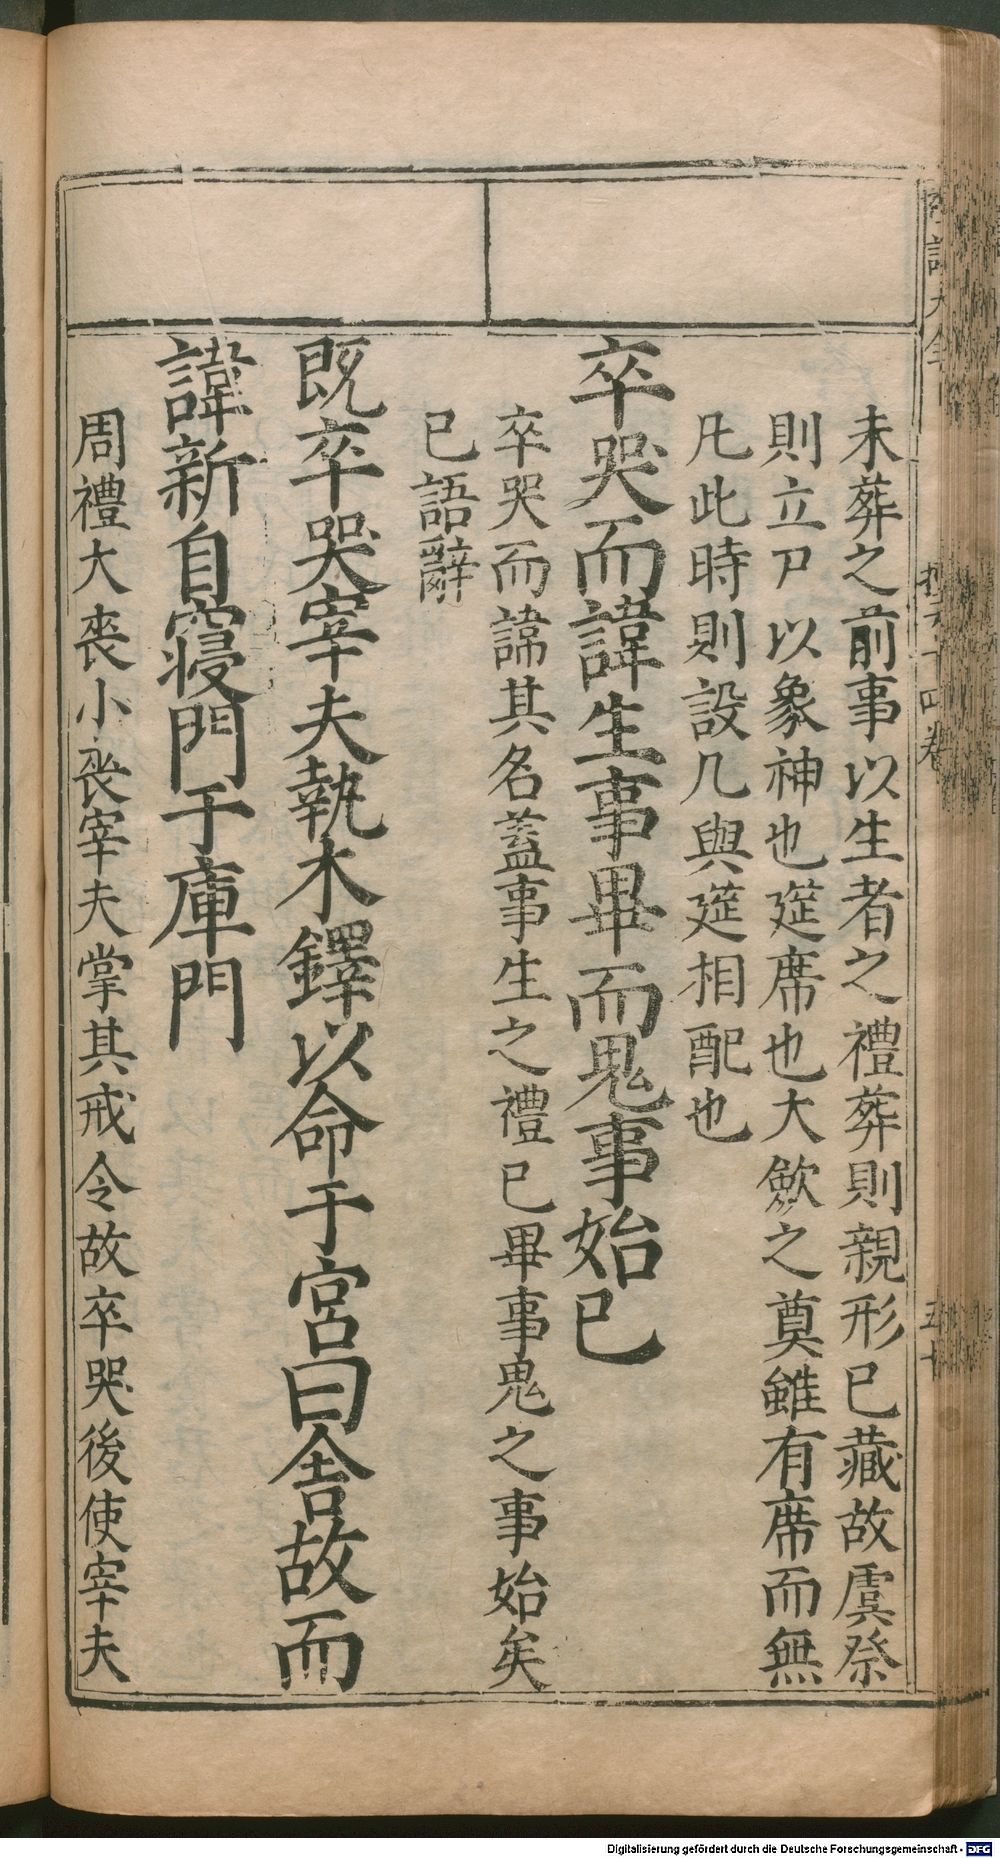 未葬之前事以生者之禮葬則親形已藏故虞祭
則立尸以象神也筵席也大歛之奠雖有席而無
凡此時則設几與筵相配也
卒哭而諱生事畢而鬼事始已
卒哭而諱其名蓋事生之禮已畢事鬼之事始矣
已語辭
既卒哭宰夫執木鐸以命于宮曰舍故而
諱新自寢門于庫門
周禮大喪小喪宰夫掌其戒令故卒哭後使宰夫
Digitalisierung gefördert durch die Deutsche Forschungsgemeinschaft - DFG